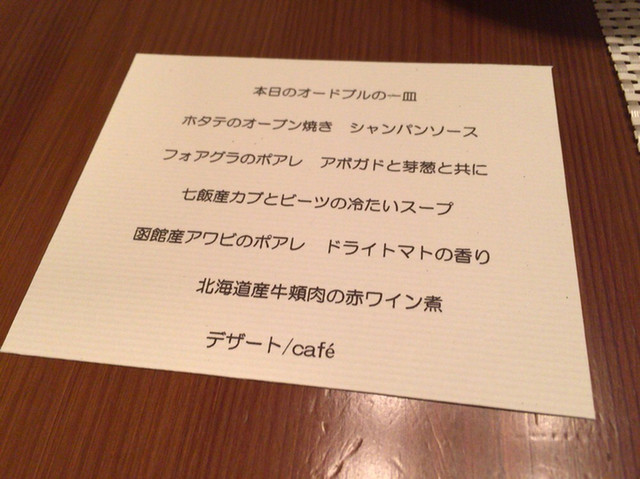 本日のオードブルの一皿
ホタテのオーブン焼き　シャンパンソース
フォアグラのポアレ　アボガドと芽葱と共に
七飯産カブとビーツの冷たいスープ
函館産アワビのポアレ　ドライトマトの香り
北海道産牛頬肉の赤ワイン煮
デザート/café